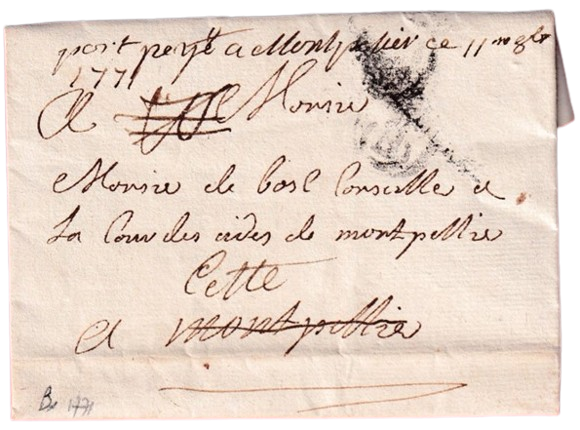 port payé a Montpelier ce 11 m 8bre
1771
A Monsie
Monsie de bosc Conseille a
La Cour des aides de montpellie
Cette
A montpellie
Be 1771